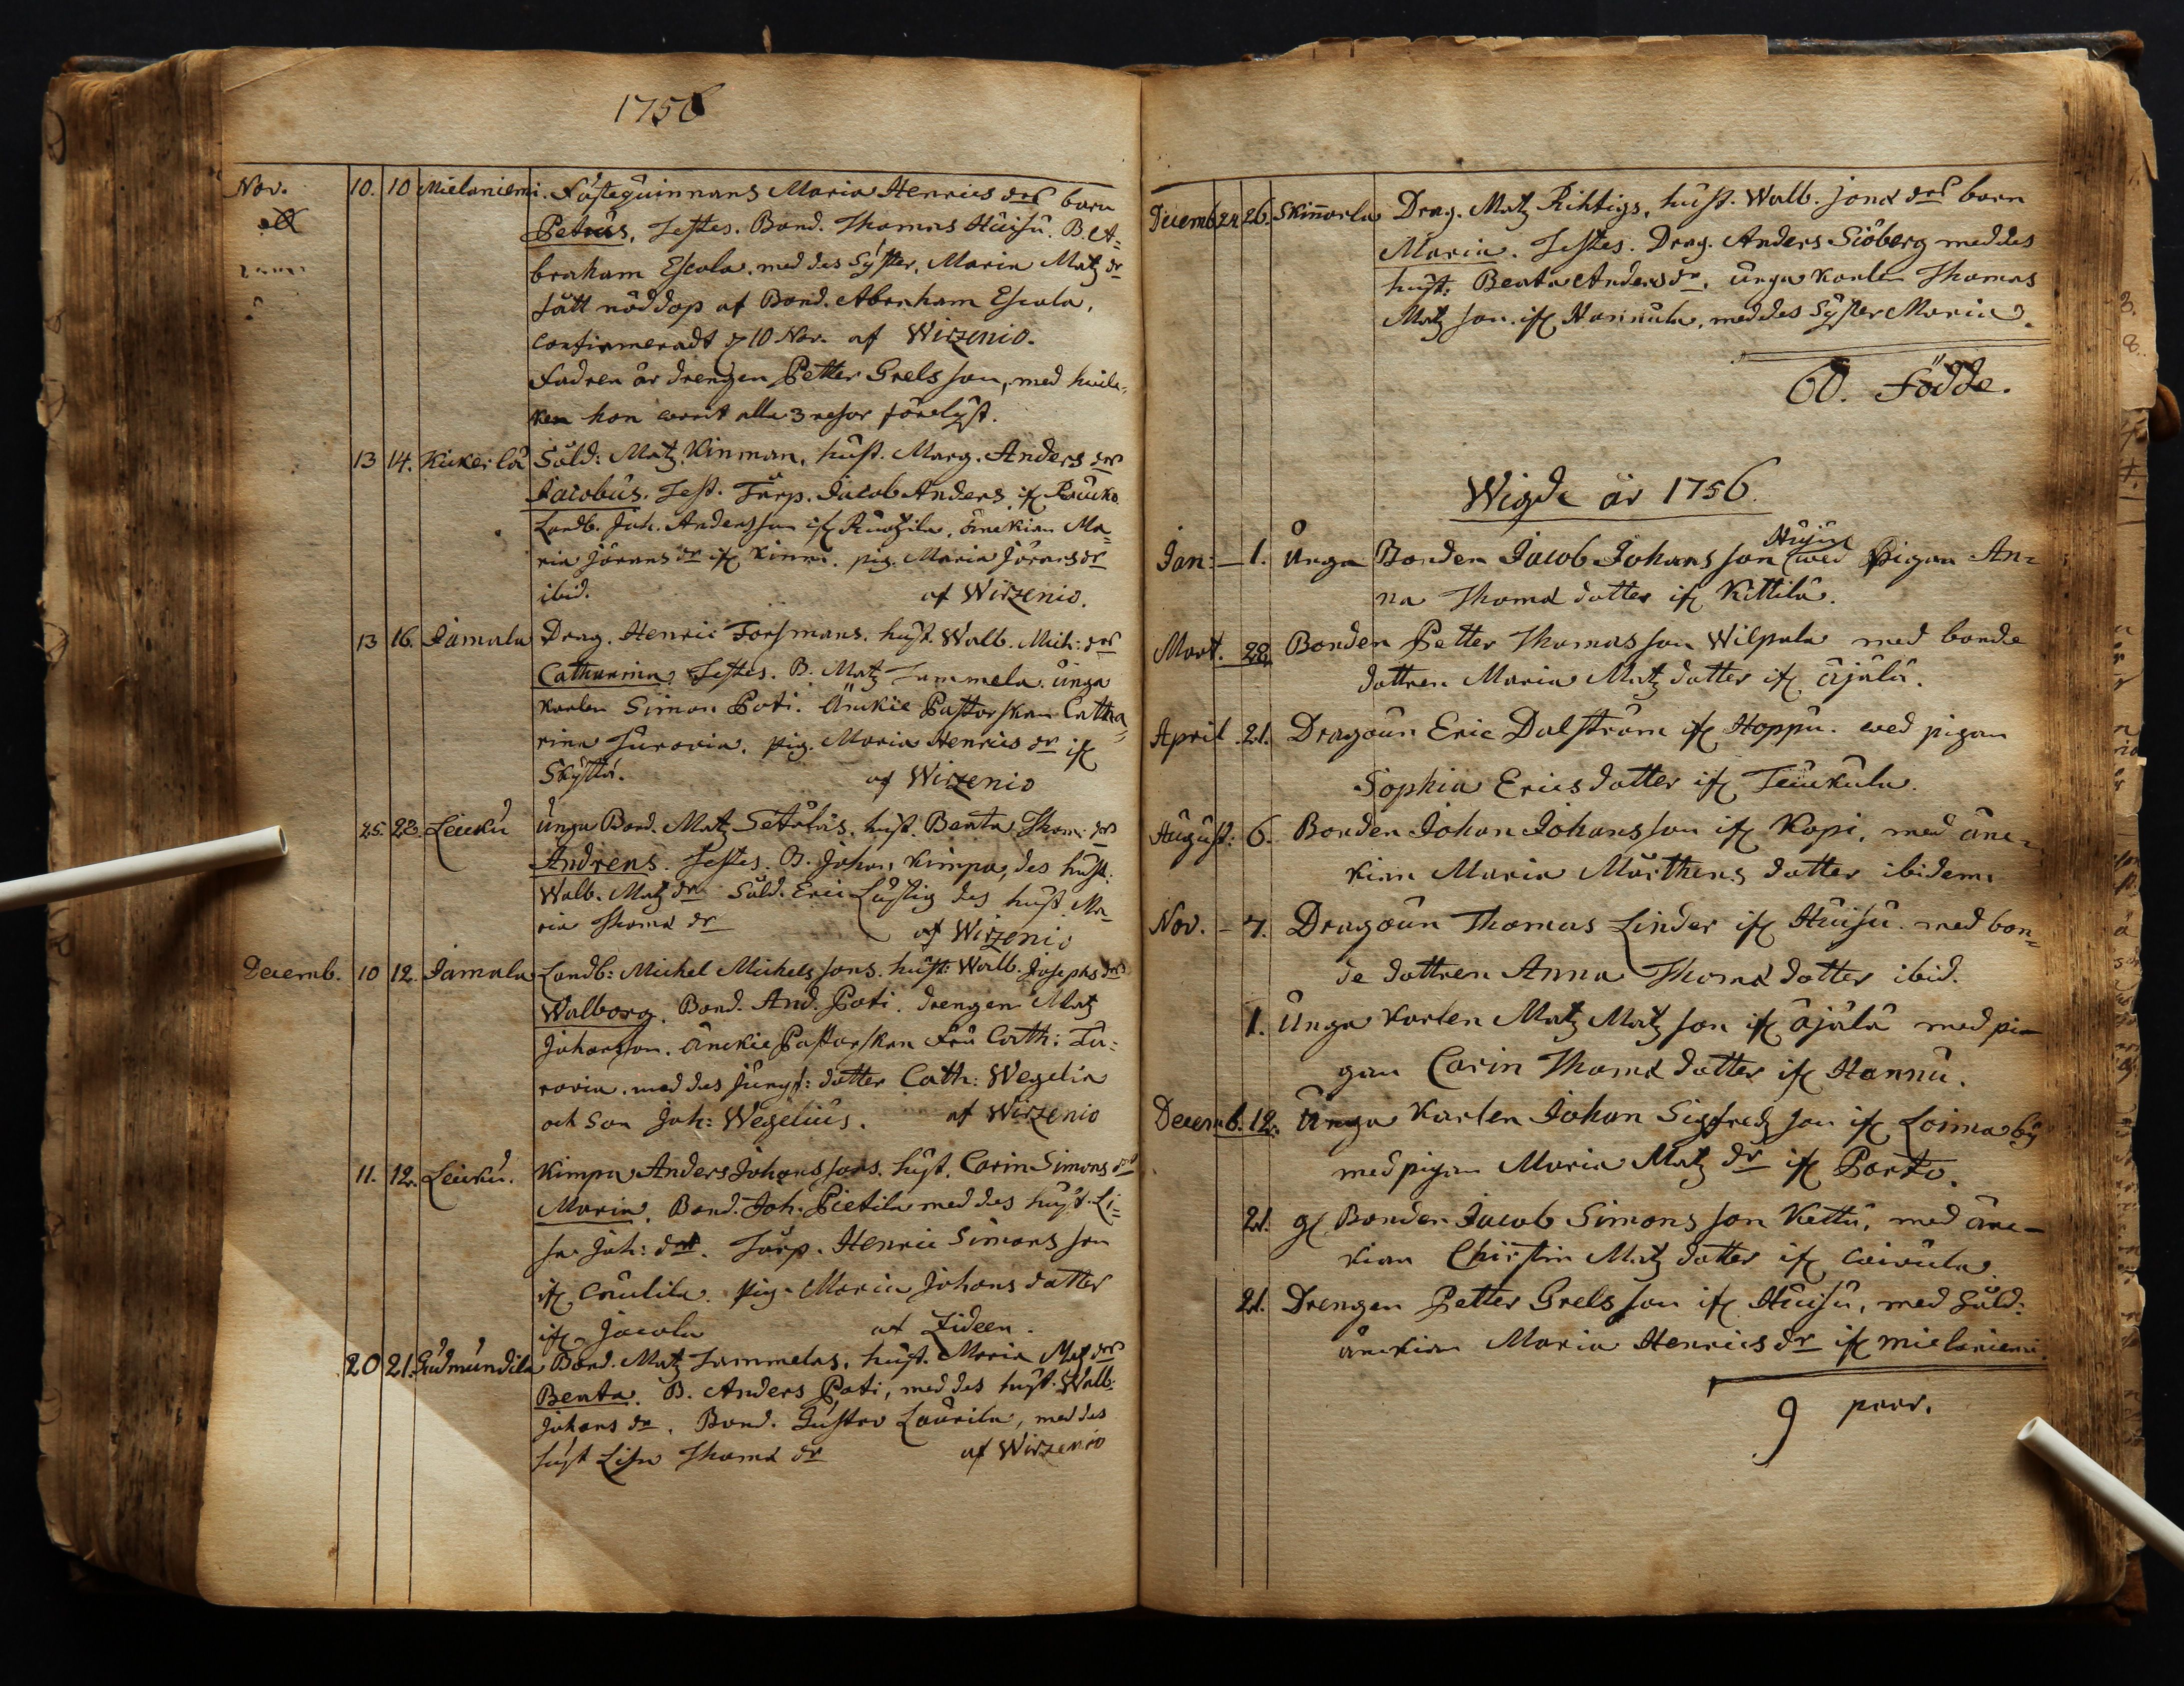 1756
Nov. 10. 10 Mielaniemi. Fästeqvinnans Maria Henrics drs barn
Petrus, Testes. Bond. Thomas Huisu. B. A=
braham Escola, med des Syster, Maria Matz dr
fått nöddop af Bond. Abraham Escola,
confirmeradt d 10 Nov. af Wirzenio.
Fadren är drengen Petter Grels son, med hvil=
ken hon warit alla 3 resor förelyst.
13 14. Kickerlä Sold: Matz Kinman, hust. Marg. Anders drs
Jacobus. Test. Torp. Jacob Anders. if Rauko
Landb. Joh. Andersson if, änckian Ma=
ria Jörans dr if Kinni. pig. Maria Jörans dr
ibid. af Wirzenio.
13 16. Jamala Drag. Henric Forsmans. hust. Walb. Mich: drs
Catharina. Testes. B. Matz Tammela. unga
karlen Simon Poti. Änckie Pastorskan Catha=
rina Turoria. pig. Maria Henrics dr if
Skyttä. af Wirzenio
25. 28. Leuku unga Bond. Matz Setälus. hust. Beata Thom: drs
Andreas. Testes. B. Johan Kimpa, des hust.
Walb. Matz dr Sold. Eric Lustig des hust. Ma=
ria Thomæ dr af Wirzenio
Decemb. 10 12. Jamala Landb: Michel Michels sons. hust: Walb. Josephs drs
Walborg. Bond. And. Poti. drengen Matz
Johansson. Änckie Pastorskan Fru Cath: Tu=
roria. med des Jungf: dotter Cath: Wegelia
och Son Joh: Wegelius. af Wirzenio
11. 12. Leuku. Kimpa Anders Johans sons. hust. Carin Simons drs
Maria. Bond. Joh. Pietila med des hust. Li=
sa Joh: dr. Torp. Henric Simons son
if Caulila. pig. Maria Johans dotter
if Jacola af Lideen.
20 21. Gudmundila Bond. Matz Tammelas. hust. Maria Matz drs
Beata. B. Anders Poti, med des hust. Walb.
Johans dr. Bond. Gustav Laurila, med des
hust Lisa Thomæ dr af Wirzenio
Decemb 24 26. Skinnarla Drag. Matz Richtigs, hust. Walb. Jonæ drs barn
Maria. Testes. Drag. Anders Siöberg med des
hust: Beata Anders dr. unga Karlen Thomas
Matz son. if Hannula, med des Syster Maria.
60. Födde.
Wigde år 1756.
Huisu
Jan: 1. Unga Bonden Jacob Johans son wid Pigan An=
na Thomæ dotter if Kittilä.
Mart. 28. Bonden Petter Thomas son Wilpala med bonde
dottren Maria Matz dotter if Äjälä.
April 21. Dragoun Eric Dalström if Hoppu. wed pigan
Sophia Erics dotter if Teuckula.
August: 6. Bonden Johan Johans son if Kopi, med änc=
kian Maria Mårthens dotter ibidem
Nov. 7. Dragoun Thomas Linder if Huisu. med bon=
de dottren Anna Thomæ dotter ibid.
1. Unga Karlen Matz Matz son if Äjälä med pi=
gan Carin Thomæ dotter if Hannu.
Decemb. 12. Unga Karlen Johan Sigfredz son if Loimaby
med pigan Maria Matz dr if Porto.
21. gl. Bonden Jacob Simons son Kettu, med änc=
kian Chirstin Matz dotter if
21. Drengen Petter Grels son if Huisu, med Sold:
änckian Maria Henrics dr if mielaniemi.
9 paar.